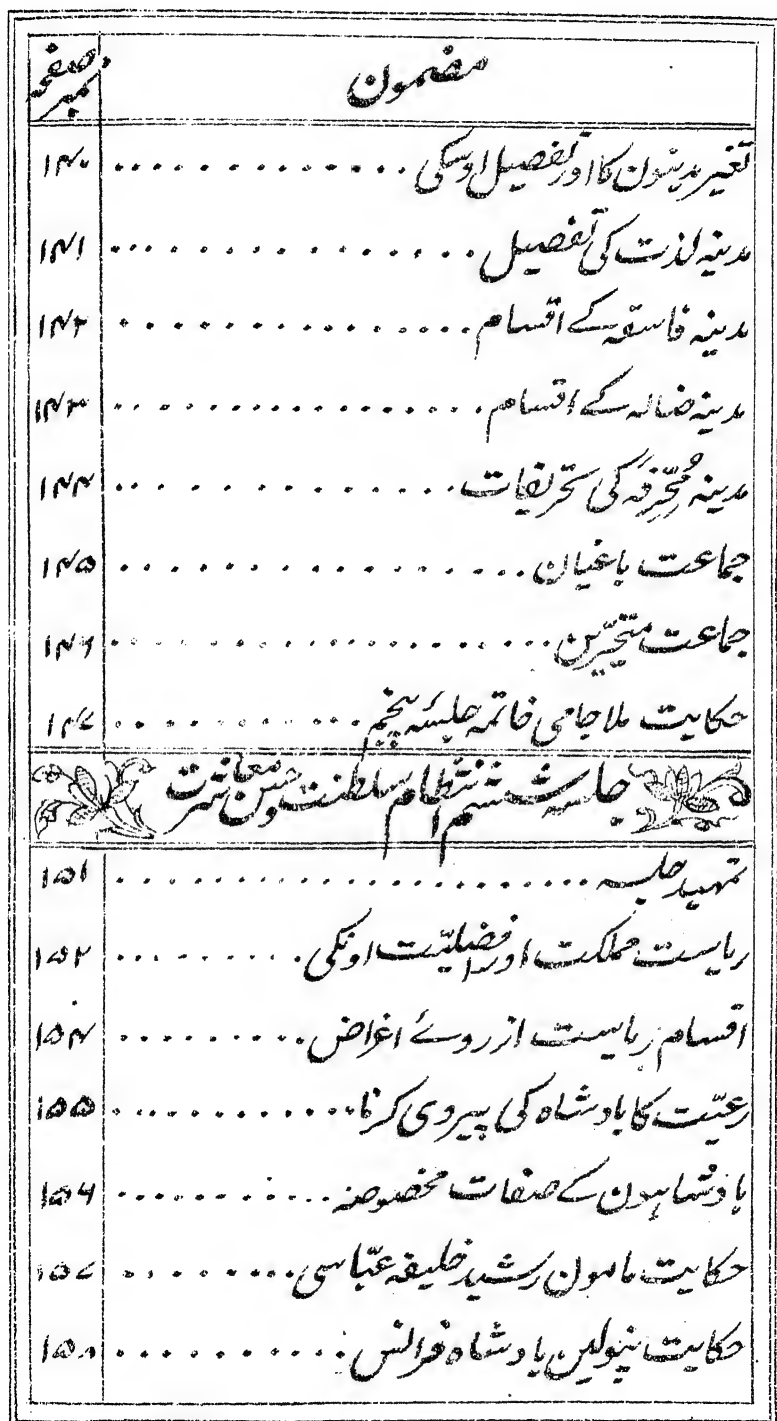 مضمون نمبر صفحہ
تغیر مدینون کا اور تفصیل اوسکی .............. ۱۴۰
مدینہ لذت کی تفصیل ................ ۱۴۱
مدینہ فاسقہ کے اقسام ................ ۱۴۲
مدینہ ضالہ کے اقسام ................ ۱۴۳
مدینہ مُحَرِّفَہ کی تحریفات ............... ۱۴۴
جماعت باغیان ................. ۱۴۵
جماعت متحیّرین ................... ۱۴۶
حکایت ملا جامی خاتمہ جلسۂ پنجم ............ ۱۴۷
جلسہ ششم انتظام سلطنت و حسن معاشرت
تمہید جلسہ ...................... ۱۵۱
ریاست مملکت اور افضلیّت اونکی ............ ۱۵۲
اقسام ریاست از روے اغراض .......... ۱۵۴
رعیّت کا بادشاہ کی پیروی کرنا ............. ۱۵۵
بادشاہون کے صفات مخصوصہ ............ ۱۵۶
حکایت مامون رشید خلیفہ عبّاسی .......... ۱۵۷
حکایت نپولین بادشاہ فرانس ............ ۱۵۸